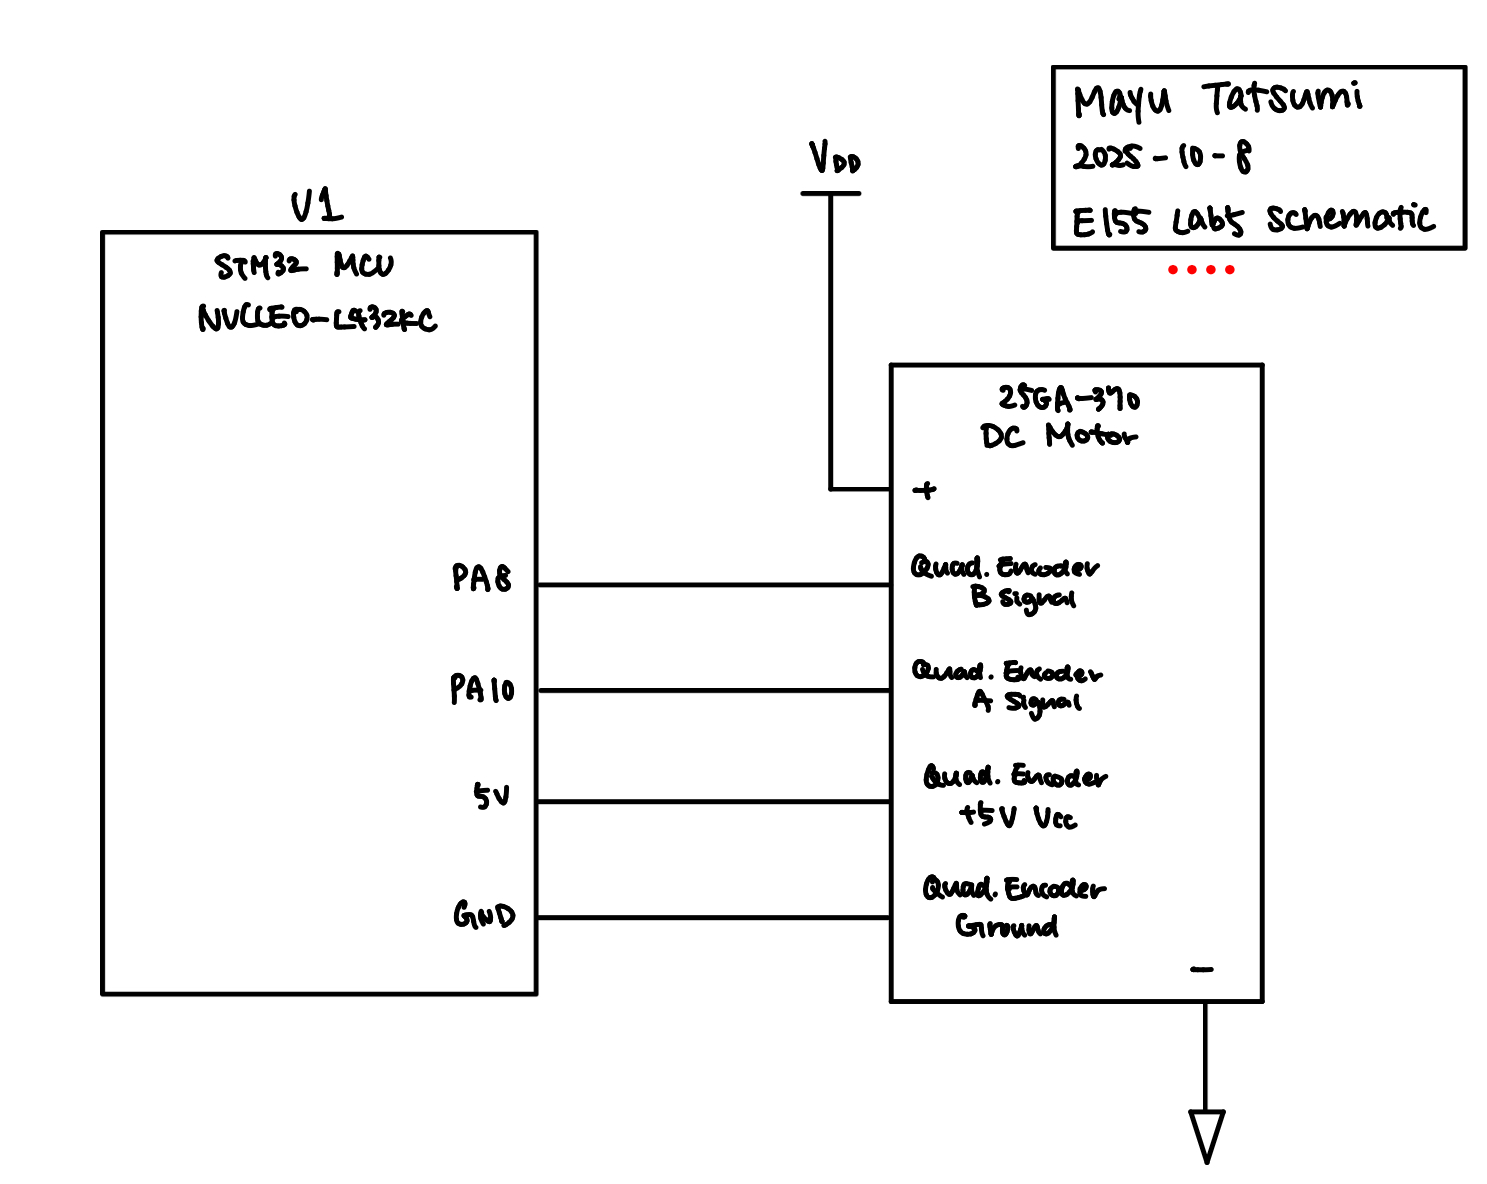 Mayu Tatsumi
2025-10-8
E155 Lab5 Schematic
VDD
U1
STM32 MCU
NUCLEO-L432KC
PA8
PA10
5V
GND
25GA-370
DC Motor
+
Quad. Encoder
B Signal
Quad. Encoder
A Signal
Quad. Encoder
+5V Vcc
Quad. Encoder
Ground
-